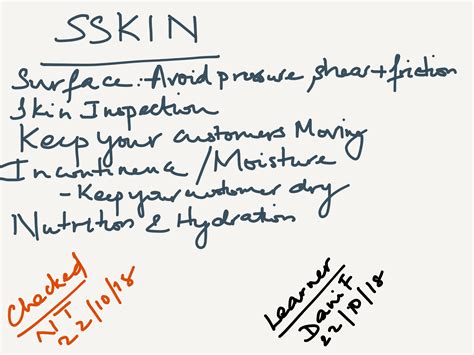 SSKIN
Surface:- Avoid pressure, shear + friction
Skin Inspection
Keep your customers Moving
Incontinence / Moisture
- Keep your customer dry
Nutrition & Hydration
Checked
NT
22/10/18
Learner
Dani F
22/10/18